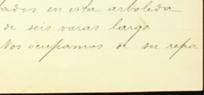 tados en esta arboleda
de seis varas largo
Nos ocupamos de su repa